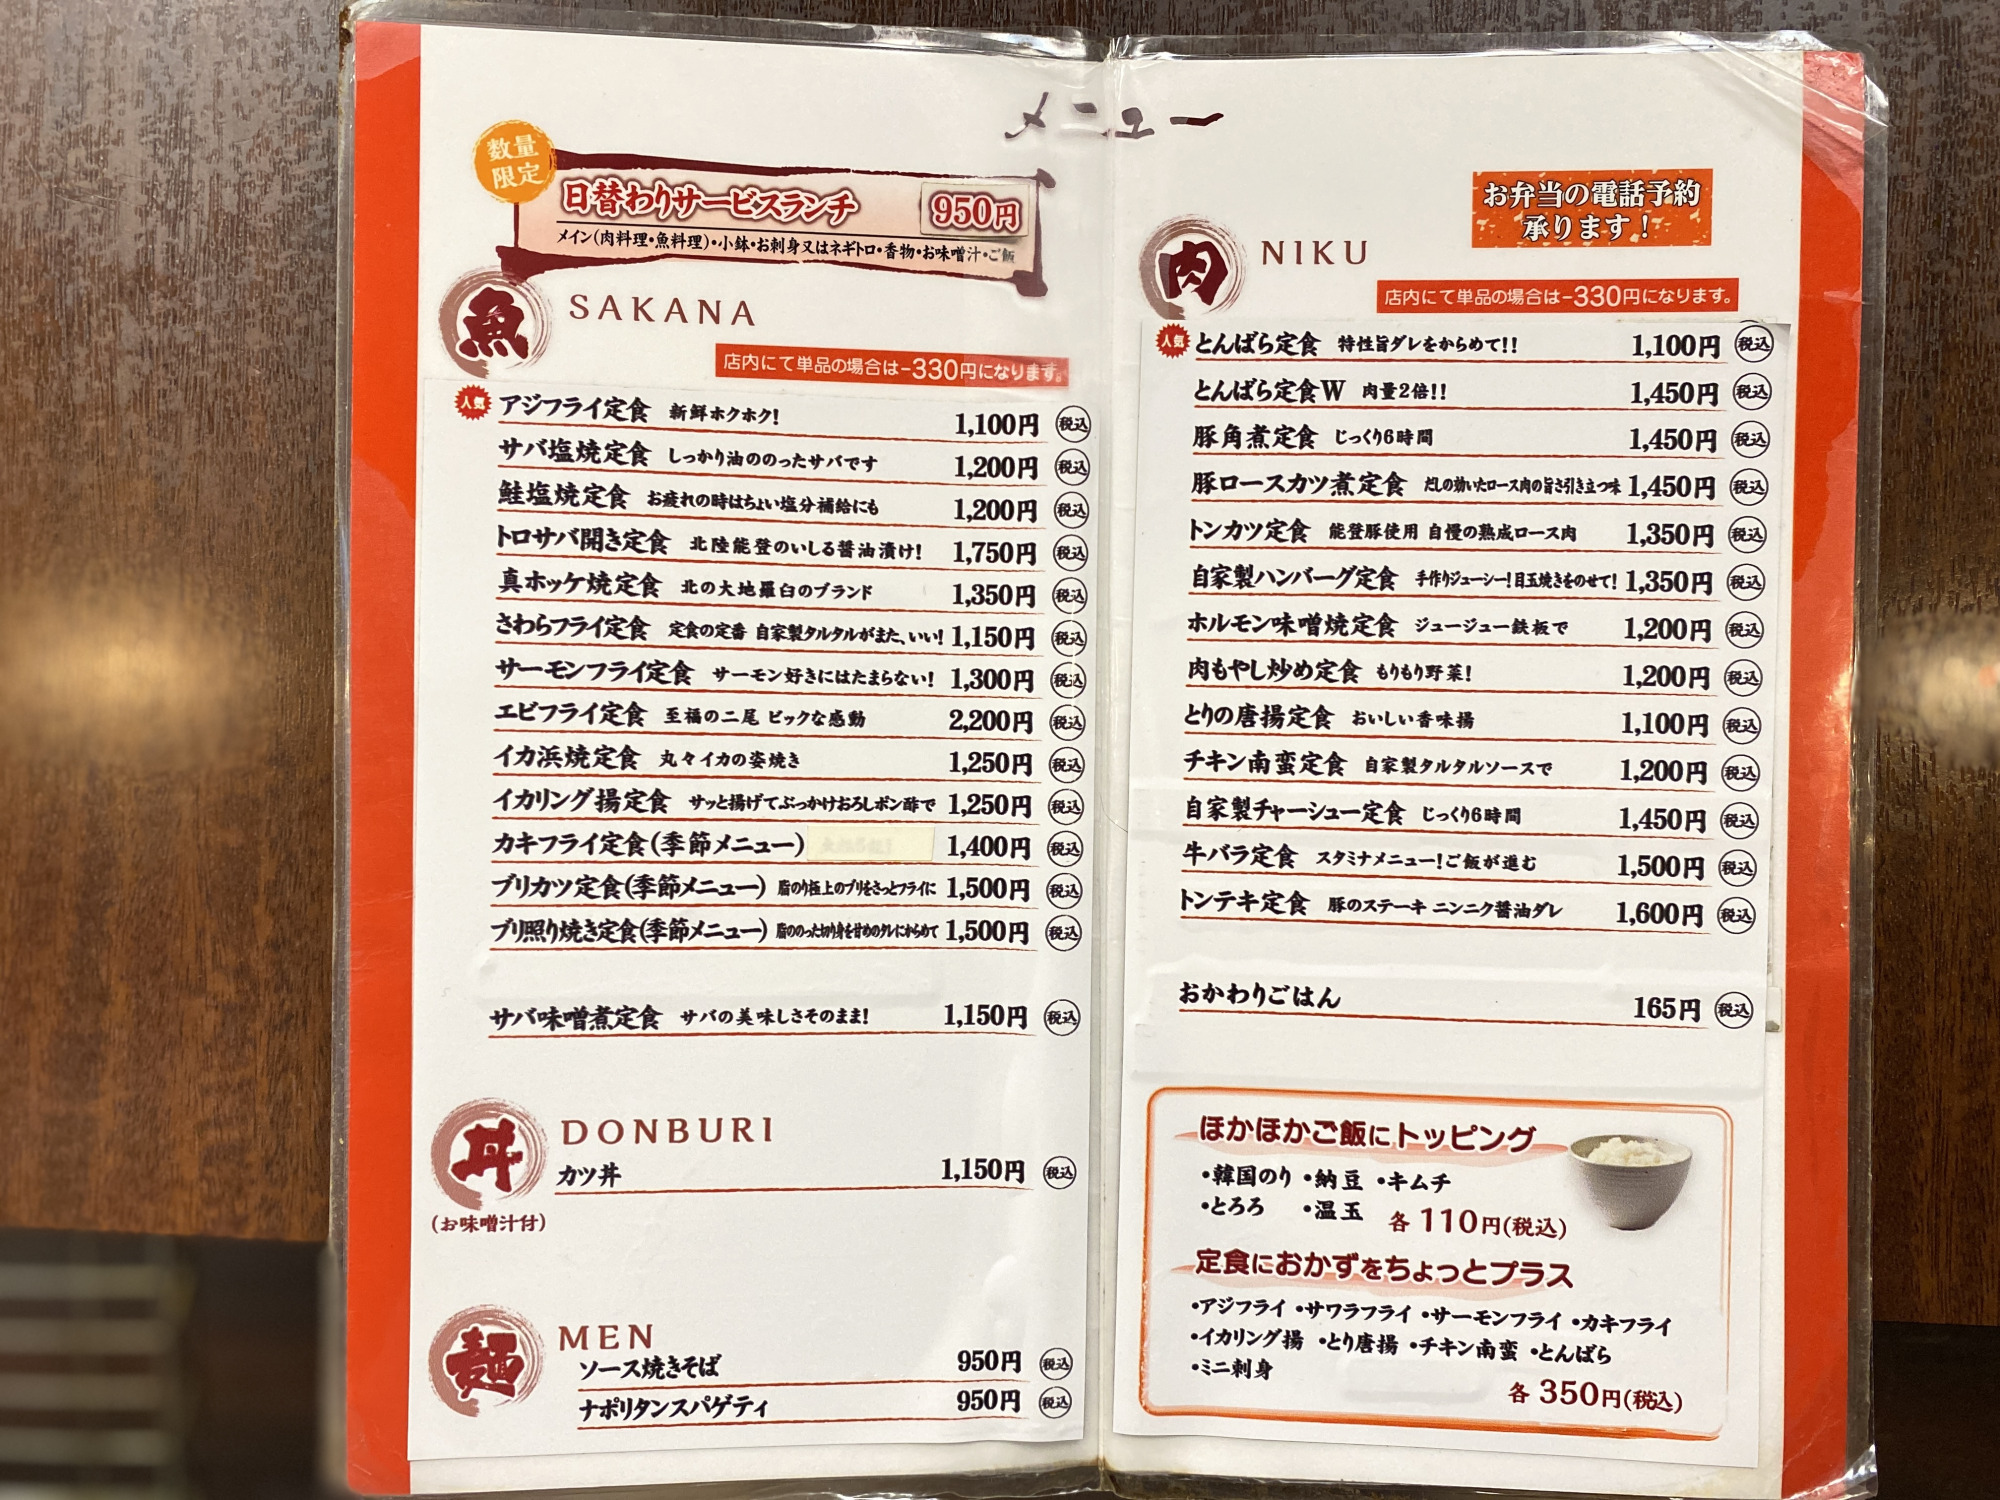 メニュー
数量
限定
日替わりサービスランチ 950円
メイン(肉料理・魚料理)・小鉢・お刺身又はネギトロ・香物・お味噌汁・ご飯
魚 SAKANA
店内にて単品の場合は-330円になります。
人気 アジフライ定食 新鮮ホクホク! 1,100円 税込
サバ塩焼定食 しっかり油ののったサバです 1,200円 税込
鮭塩焼定食 お疲れの時はちょい塩分補給にも 1,200円 税込
トロサバ開き定食 北陸能登のいしる醤油漬け! 1,750円 税込
真ホッケ焼定食 北の大地羅臼のブランド 1,350円 税込
さわらフライ定食 定食の定番 自家製タルタルがまた、いい! 1,150円 税込
サーモンフライ定食 サーモン好きにはたまらない! 1,300円 税込
エビフライ定食 至福の二尾 ビックな感動 2,200円 税込
イカ浜焼定食 丸々イカの姿焼き 1,250円 税込
イカリング揚定食 サッと揚げてぶっかけおろしポン酢で 1,250円 税込
カキフライ定食(季節メニュー) 1,400円 税込
ブリカツ定食(季節メニュー) 脂のり極上のブリをさっとフライに 1,500円 税込
ブリ照り焼き定食(季節メニュー) 脂ののった切り身を甘めのタレにからめて 1,500円 税込
サバ味噌煮定食 サバの美味しさそのまま! 1,150円 税込
丼 DONBURI
カツ丼 1,150円 税込
(お味噌汁付)
麺 MEN
ソース焼きそば 950円 税込
ナポリタンスパゲティ 950円 税込
お弁当の電話予約
承ります!
肉 NIKU
店内にて単品の場合は-330円になります。
人気 とんばら定食 特性旨ダレをからめて!! 1,100円 税込
とんばら定食W 肉量2倍!! 1,450円 税込
豚角煮定食 じっくり6時間 1,450円 税込
豚ロースカツ煮定食 だしの効いたロース肉の旨さ引き立つ味 1,450円 税込
トンカツ定食 能登豚使用 自慢の熟成ロース肉 1,350円 税込
自家製ハンバーグ定食 手作りジューシー!目玉焼きをのせて! 1,350円 税込
ホルモン味噌焼定食 ジュージュー鉄板で 1,200円 税込
肉もやし炒め定食 もりもり野菜! 1,200円 税込
とりの唐揚定食 おいしい香味揚 1,100円 税込
チキン南蛮定食 自家製タルタルソースで 1,200円 税込
自家製チャーシュー定食 じっくり6時間 1,450円 税込
牛バラ定食 スタミナメニュー!ご飯が進む 1,500円 税込
トンテキ定食 豚のステーキ ニンニク醤油ダレ 1,600円 税込
おかわりごはん 165円 税込
ほかほかご飯にトッピング
・韓国のり ・納豆 ・キムチ
・とろろ ・温玉 各110円(税込)
定食におかずをちょっとプラス
・アジフライ ・サワラフライ ・サーモンフライ ・カキフライ
・イカリング揚 ・とり唐揚 ・チキン南蛮 ・とんばら
・ミニ刺身
各350円(税込)